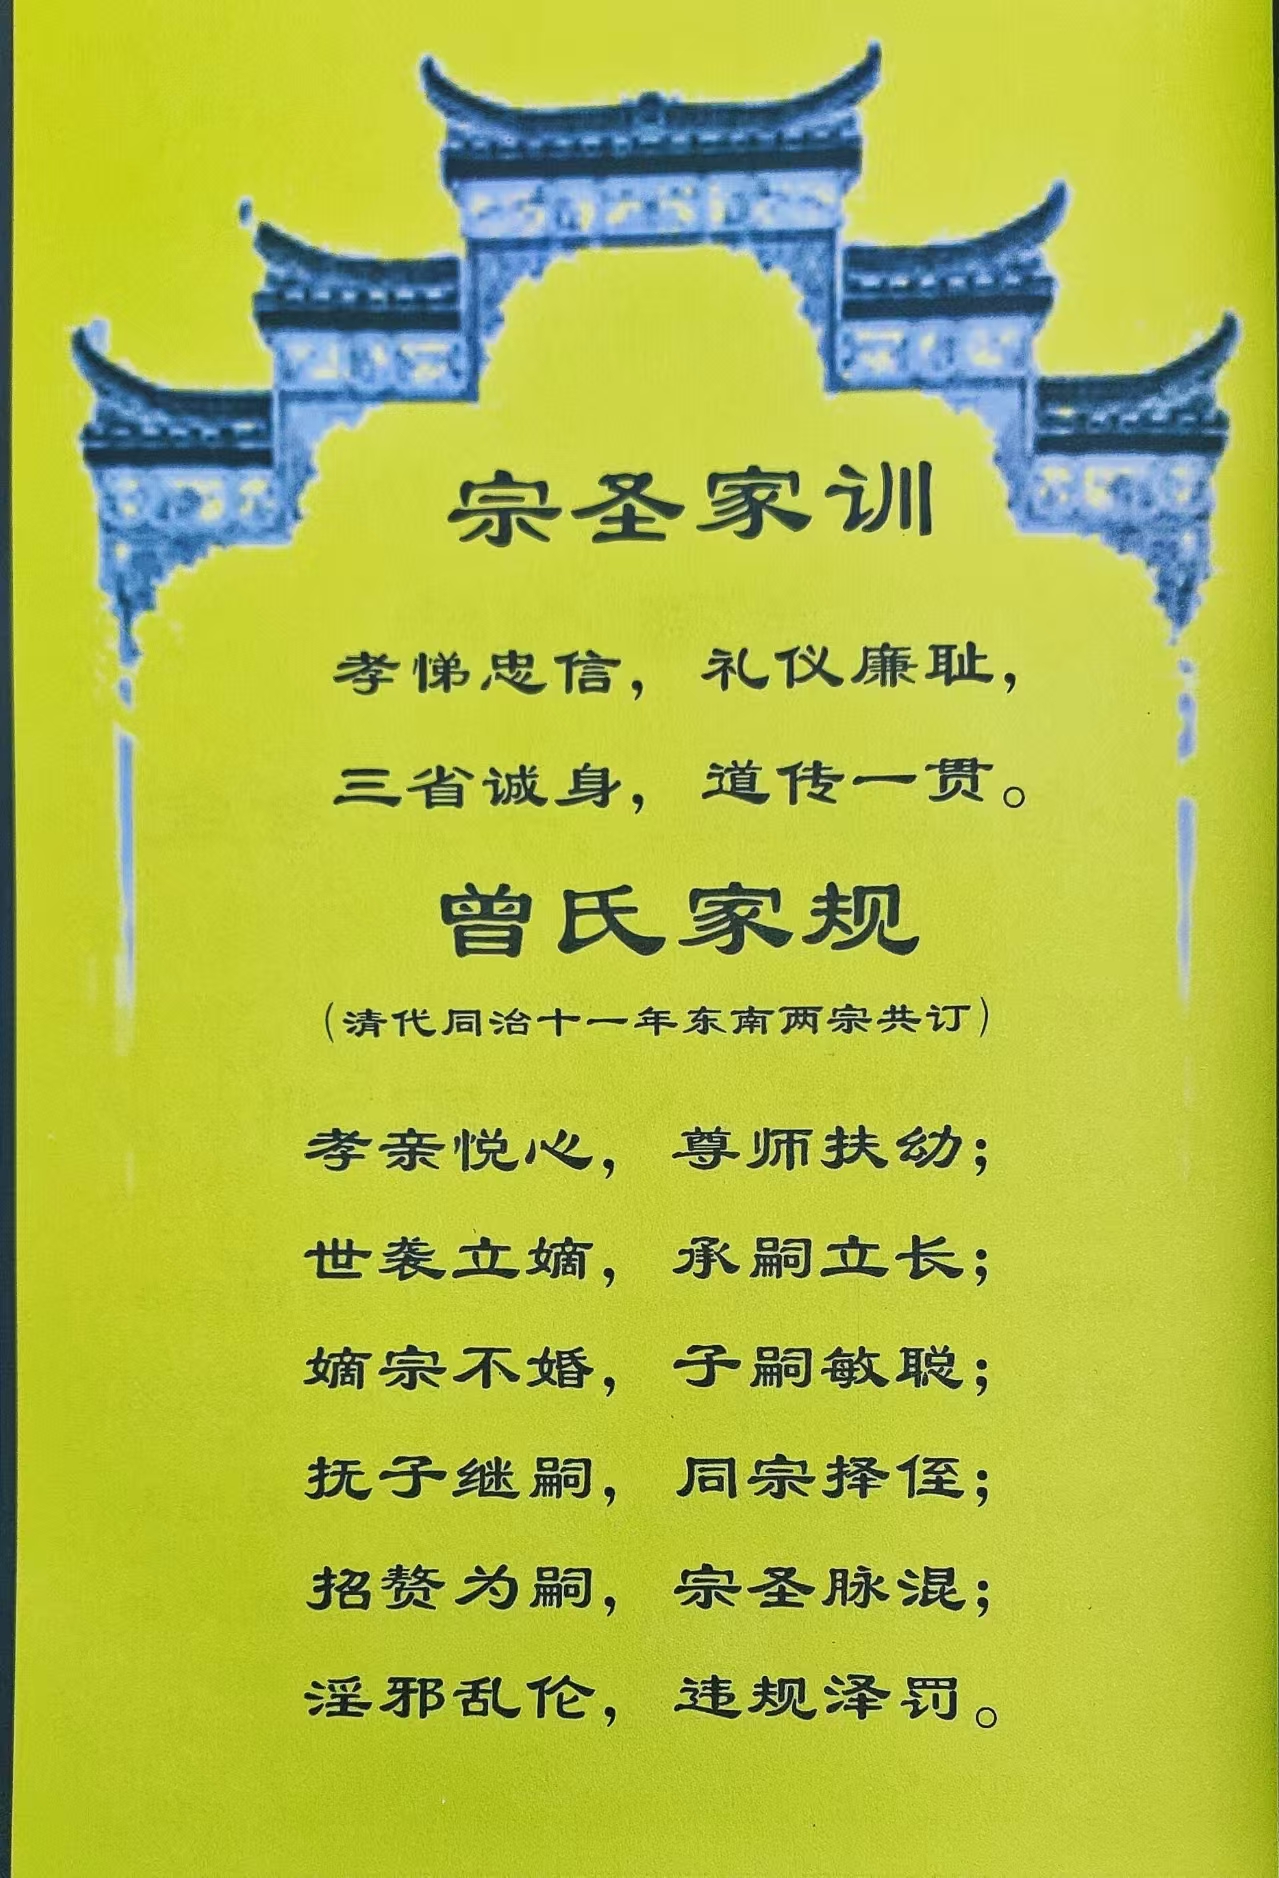 宗圣家训
孝悌忠信，礼仪廉耻，
三省诚身，道传一贯。
曾氏家规
（清代同治十一年东南两宗共订）
孝亲悦心，尊师扶幼；
世袭立嫡，承嗣立长；
嫡宗不婚，子嗣敏聪；
抚子继嗣，同宗择侄；
招赘为嗣，宗圣脉混；
淫邪乱伦，违规泽罚。